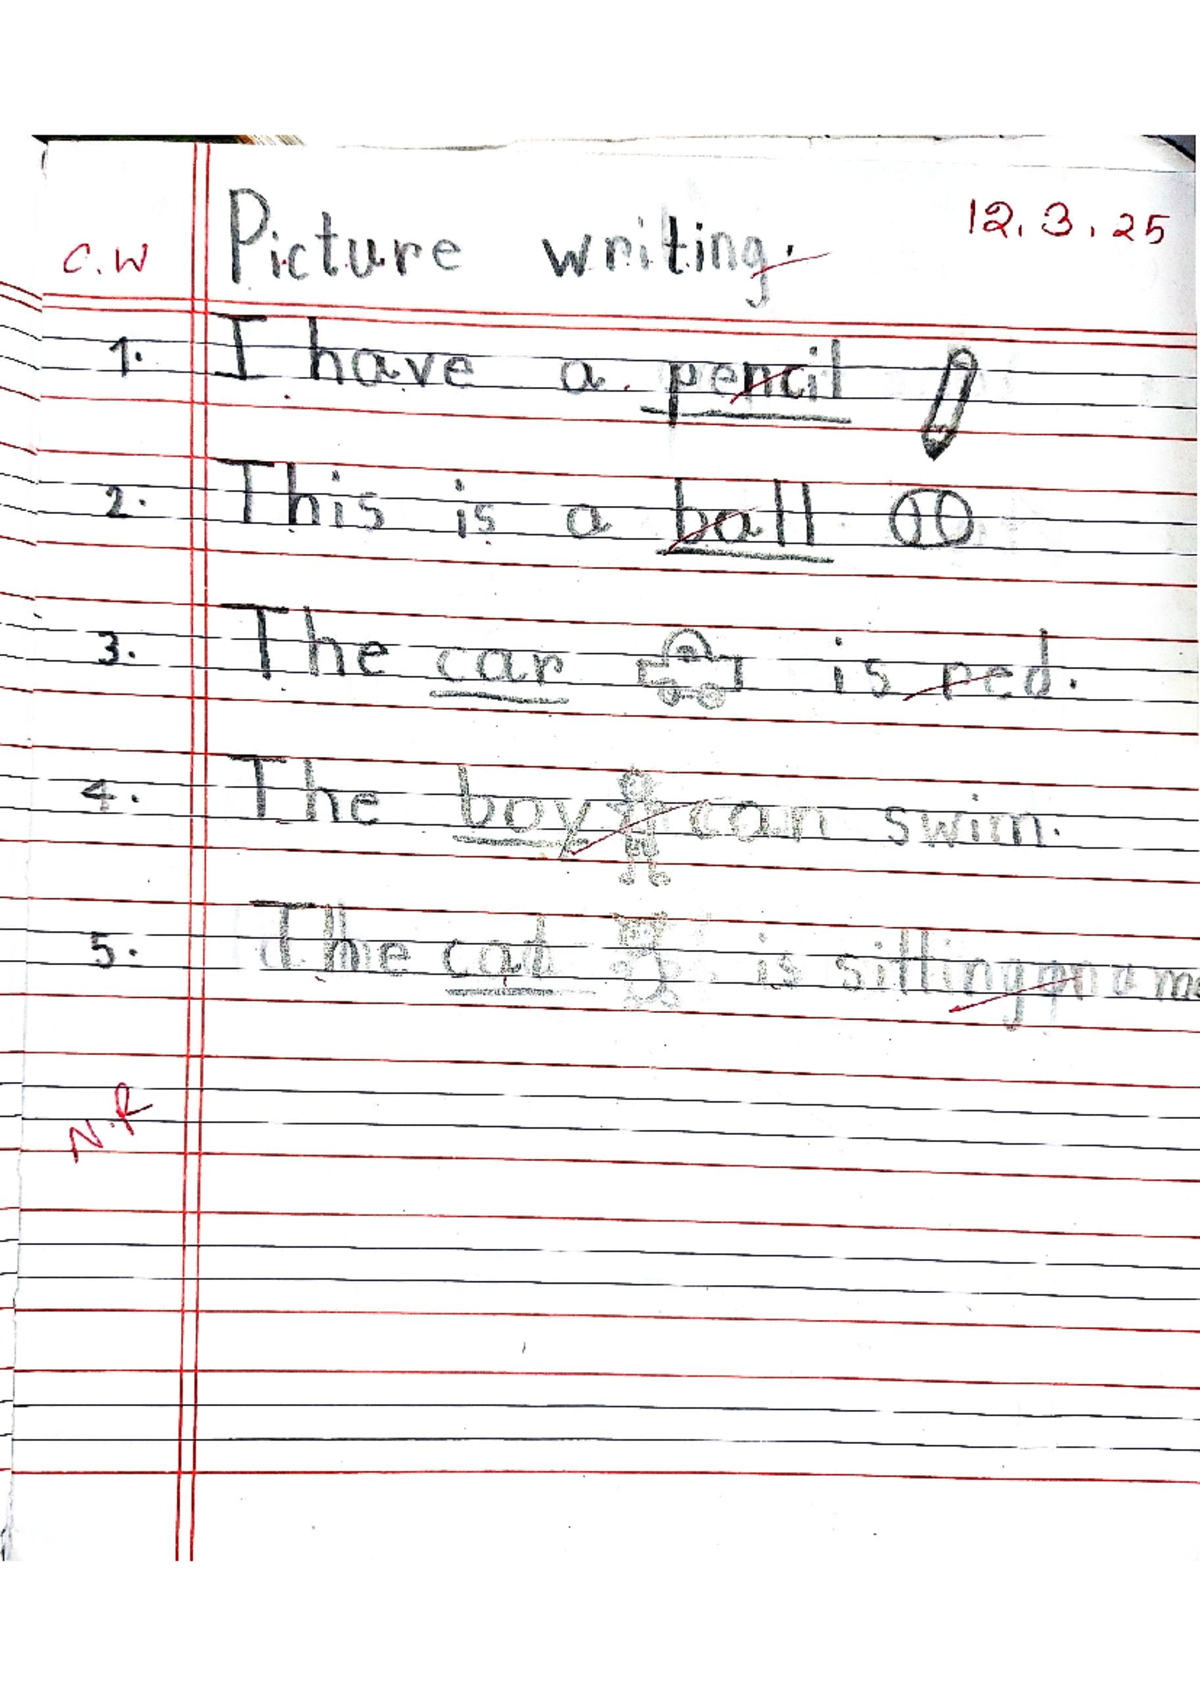 12.3.25
C.W Picture writing.
1. I have a pencil
2. This is a ball
3. The car is red.
4. The boy can swim.
5. The cat is sitting on a
N.R